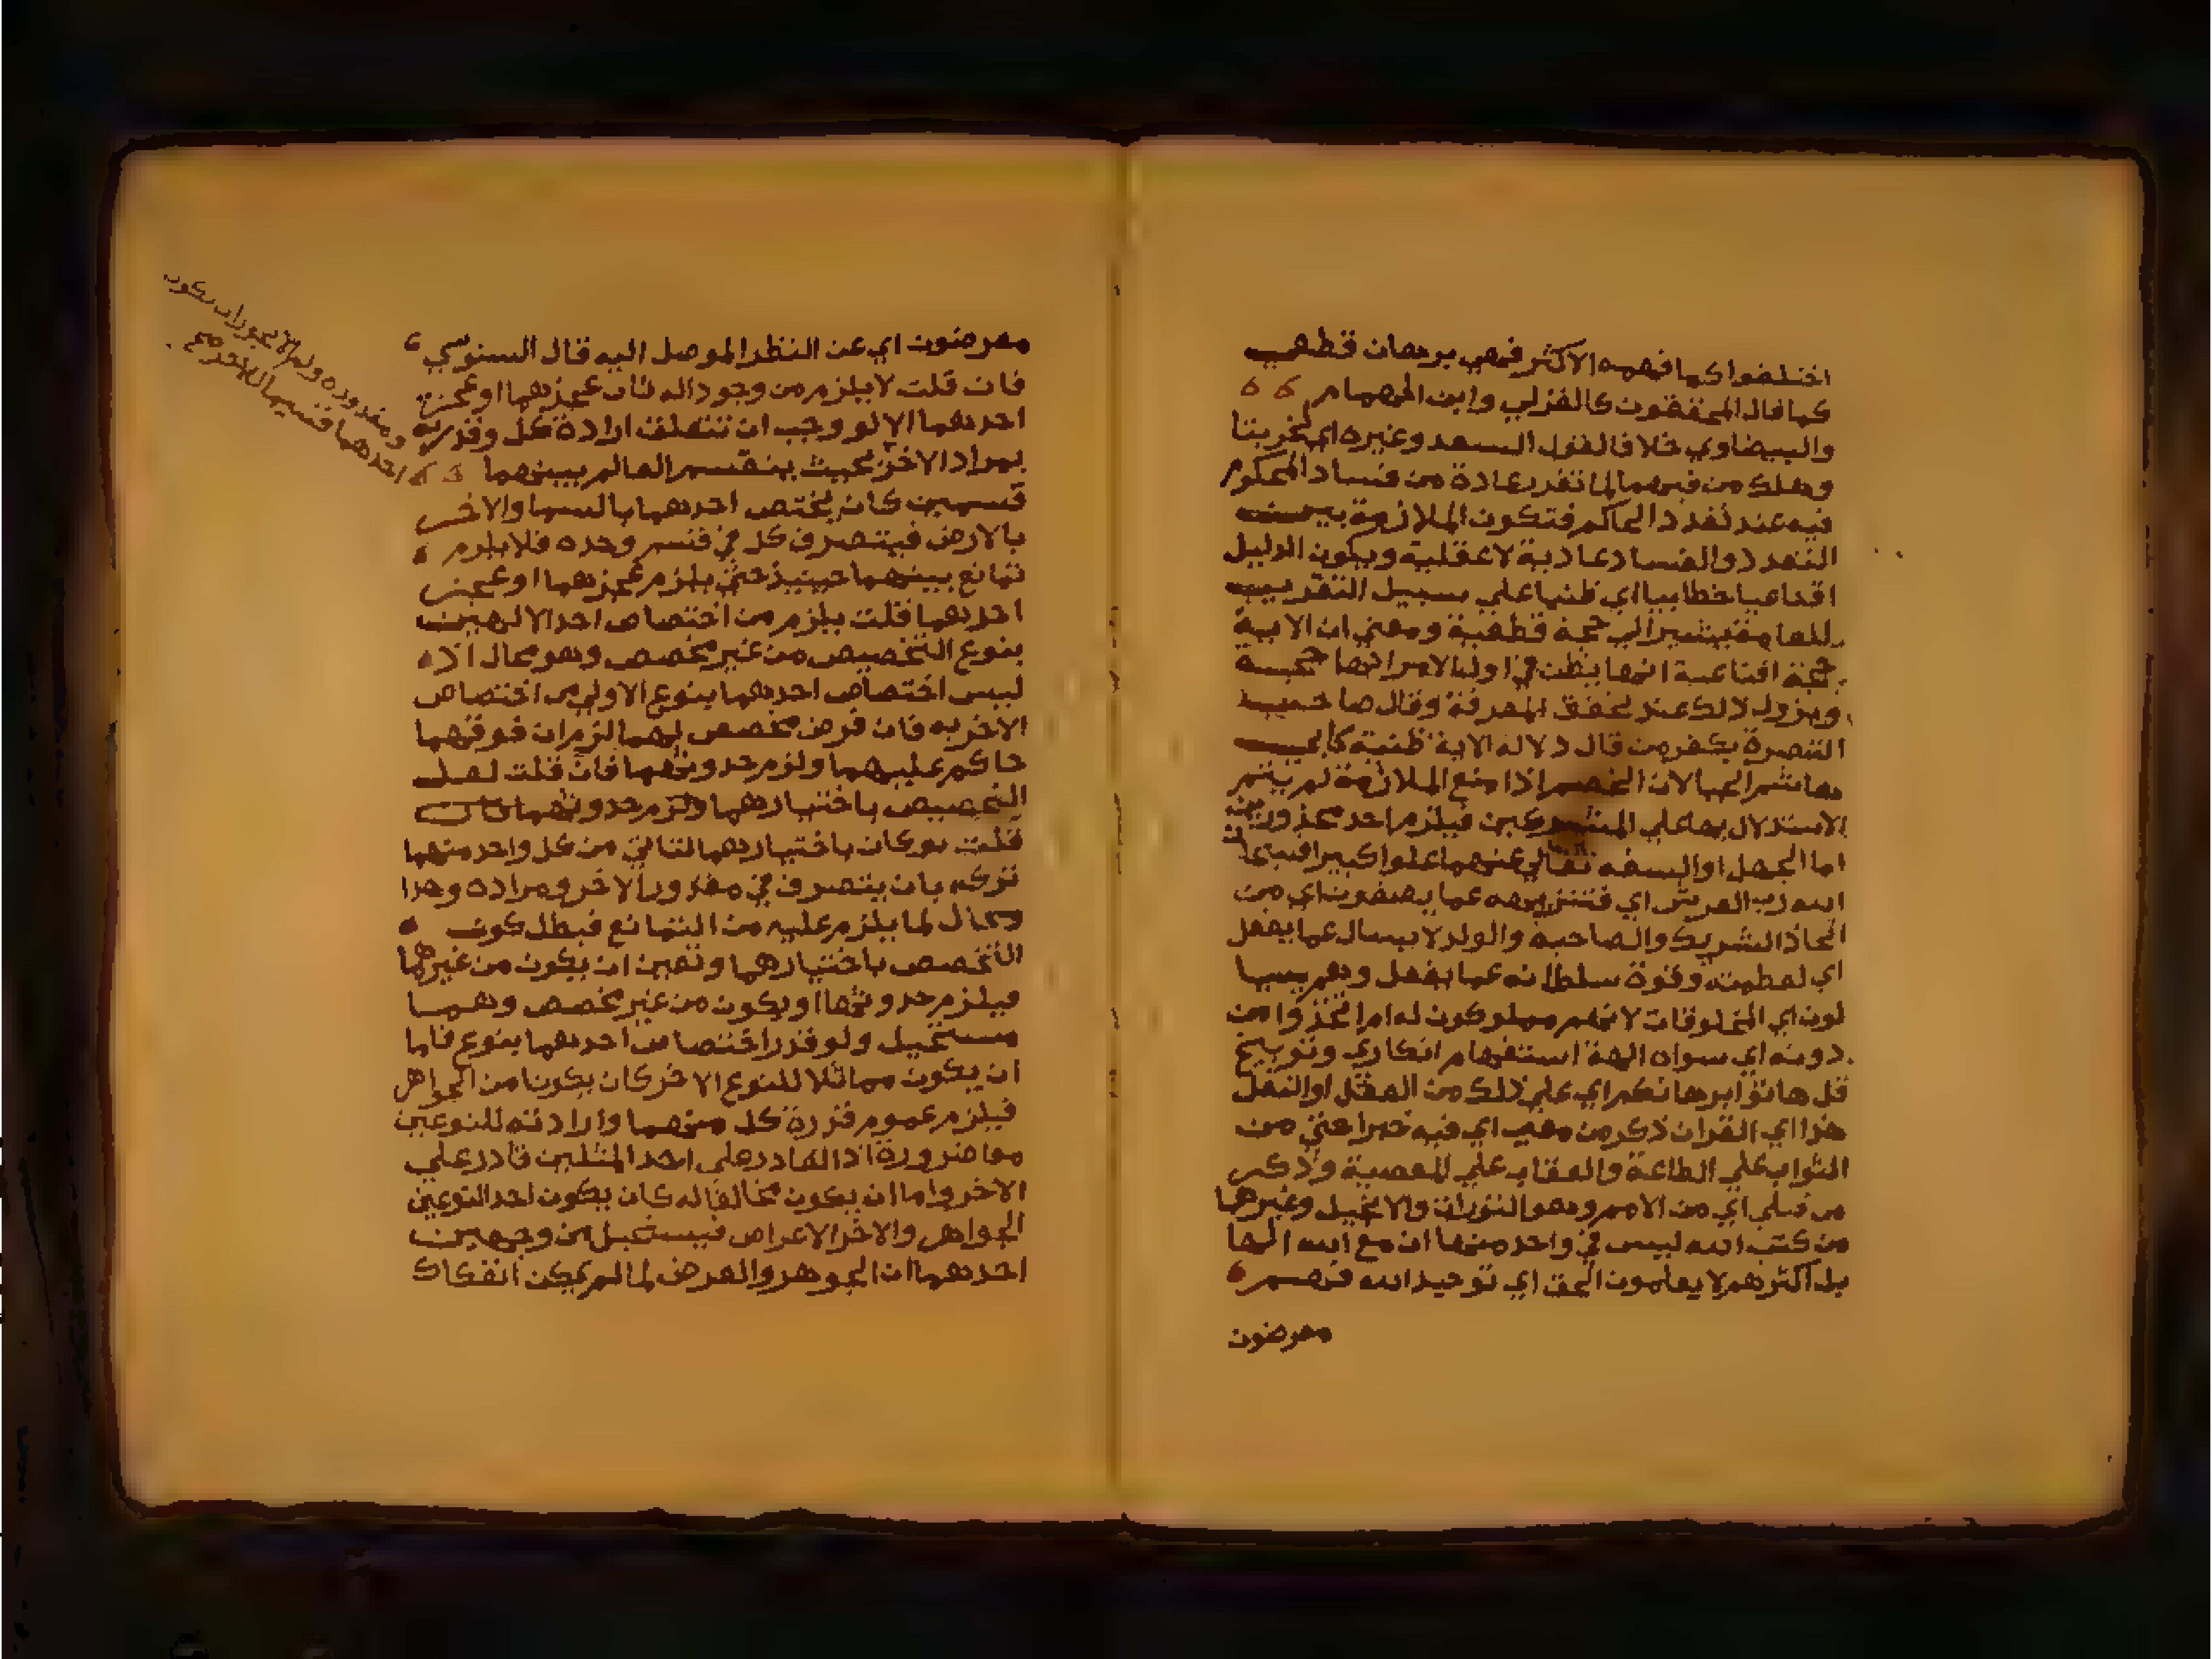 اختلفوا كما فهمه الاكثر فهي برهان قطعي
كما قال المحققون كالغزلي وابن الهمام
والبيضاوي خلافا لقول السعد وغيره اي لخربتا
وهلك من فيهما لما تقرر عادة من فساد المحكوم
فيه عند تعدد الحاكم فتكون الملازمة بين
التعدد والفساد عادية لا عقلية ويكون الدليل
اقناعيا خطابيا اي ظنيا علي سبيل التقريب
للعامة يشير الي حجة قطعية ومعني ان الاية
حجة اقناعية انها يظن في اول الامر انها حجة
ويزول ذلك عند تحقق المعرفة وقال صاحب
التبصرة يكفر من قال دلالة الاية ظنية كابي
هاشم الجبا لان الخصم اذا منع الملازمة لم يتم
الاستدلال بها علي المشركين فيلزم احد محذورين
اما الجهل او السفه تعالي عنهما علوا كبيرا فسبحان
الله رب العرش اي فتنزيهه عما يصفون اي من
اتخاذ الشريك والصاحبة والولد لا يسال عما يفعل
اي لعظمته وقوة سلطانه عما يفعل وهم يسا
لون اي المخلوقات لانهم مملوكون له ام اتخذوا من
دونه اي سواه الهة استفهام انكاري وتوبيخ
قل هاتوا برهانكم اي علي ذلك من العقل او النقل
هذا اي القران ذكر من معي اي فيه خبرا عني من
الثواب علي الطاعة والعقاب علي المعصية وذكر
من قبلي اي من الامم وهو التوراة والانجيل وغيرها
من كتب الله ليس في واحد منها ان مع الله الها
بل اكثرهم لا يعلمون الحق اي توحيد الله فهم
معرضون
معرضون اي عن النظر الموصل اليه قال السنوسي
فان قلت لا يلزم من وجود اله ثان عجزهما او عجز
احدهما الا لو وجب ان تتعلق ارادة كل وقدرته
بمراد الاخر بحيث ينقسم العالم بينهما
قسمين كان يختص احدهما بالسما والاخر
بالارض فيتصرف كل في قسم وحده فلا يلزم
تمانع بينهما حينيذ حتي يلزم عجزهما او عجز
احدهما قلت يلزم من اختصاص احد الالهين
بنوع التخصيص من غير مخصص وهو محال اذ
ليس اختصاص احدهما بنوع الاولي من اختصاص
الاخر به فان فرض مخصص لهما لزم ان فوقهما
حاكم عليهما ولزم حدوثهما فان قلت لعل
التخصيص باختيارهما ولزم حدوثهما
قلت لو كان باختيارهما لتاتي من كل واحد منهما
تركه بان يتصرف في مقدور الاخر ومراده وهذا
محال لما يلزم عليه من التمانع فبطل كون
التخصص باختيارهما وتعين ان يكون من غيرهما
فيلزم حدوثهما او يكون من غير مخصص وهما
مستحيل ولو قدر اختصاص احدهما بنوع فاما
ان يكون مماثلا للنوع الاخر كان يكونا من الجواهر
فيلزم عموم قدرة كل منهما وارادته للنوعين
معا ضرورة اذ القادر علي احد المثلين قادر علي
الاخر واما ان يكون مخالفا له كان يكون احد النوعين
الجواهر والاخر الاعراض فيستحيل من وجهين
احدهما ان الجوهر والعرض لما لم يمكن انفكاك
ومقدوره ولم لا يجوز ان يكون
احدهما قسيما للاخر